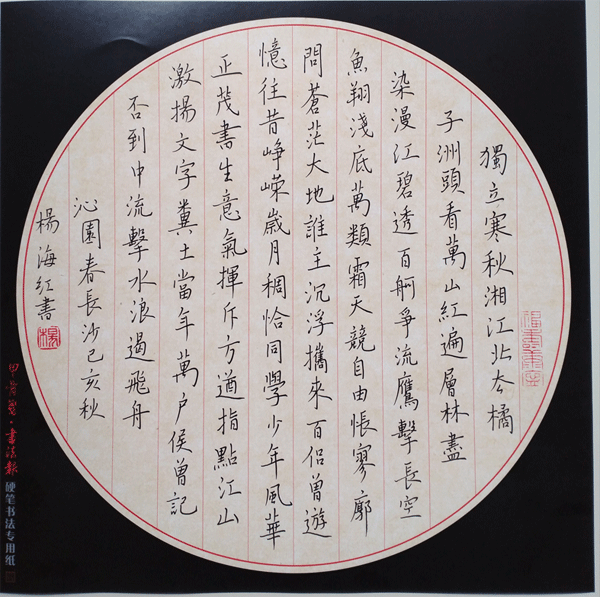 獨立寒秋湘江北去橘
子洲頭看萬山紅遍層林盡
染漫江碧透百舸爭流鷹擊長空
魚翔淺底萬類霜天競自由悵寥廓
問蒼茫大地誰主沉浮攜來百侶曾遊
憶往昔崢嶸歲月稠恰同學少年風華
正茂書生意氣揮斥方遒指點江山
激揚文字糞土當年萬户侯曾記
否到中流擊水浪遏飛舟
沁園春長沙己亥秋
楊海紅書
楊
書法報 硬笔书法专用纸